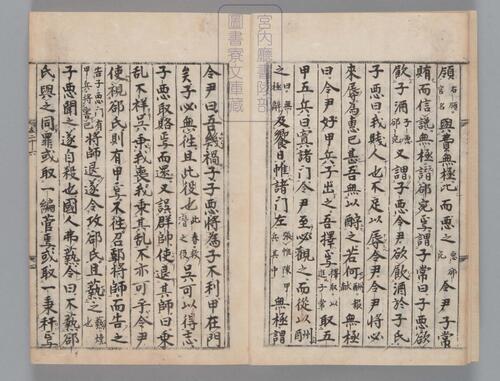 領右領官名與費無極比而惡之惡郤宛令尹子常
賄而信讒無極譖郤宛焉謂子常曰子惡欲
飲子酒子惡郤宛又謂子惡令尹欲飲酒於子氏
子惡曰我賤人也不足以辱令尹令尹將必
來辱為惠已甚吾無以酬之若何酬報獻無極
曰令尹好甲兵子出之吾擇焉擇取以進子常取五
甲五兵曰寘諸門令尹至必觀之而從以酬
之曰無極辭及饗日帷諸門左張帷陳甲兵其中無極謂
令尹曰吾幾禍子子惡將為子不利甲在門
矣子必無往且此役也此春救潛之役吳可以得志
子惡取賂焉而還又誤群帥使退其師曰乘
亂不祥吳乘我喪我乘其亂不亦可乎令尹
使視郤氏則有甲焉不往召鄢將師而告之
告子惡門有甲兵將害己將師退遂令攻郤氏且爇之爇燒也
子惡聞之遂自殺也國人弗爇令曰不爇郤
氏與之同罪或取一編菅焉或取一秉秆焉
宮内廳書陵部
圖書寮文庫藏